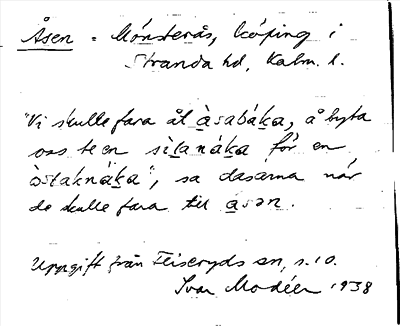 Åsen = Mönsterås, köping i
Stranda hd, Kalm. l.
"Vi skulle fara åt àsabáka, å byta
oss te en sìlanáka för en
òstaknáka", sa dasarna när
de skulle fara till åsən.
Uppgift från Fliseryds sn, s. 10.
Ivar Modéer 1938